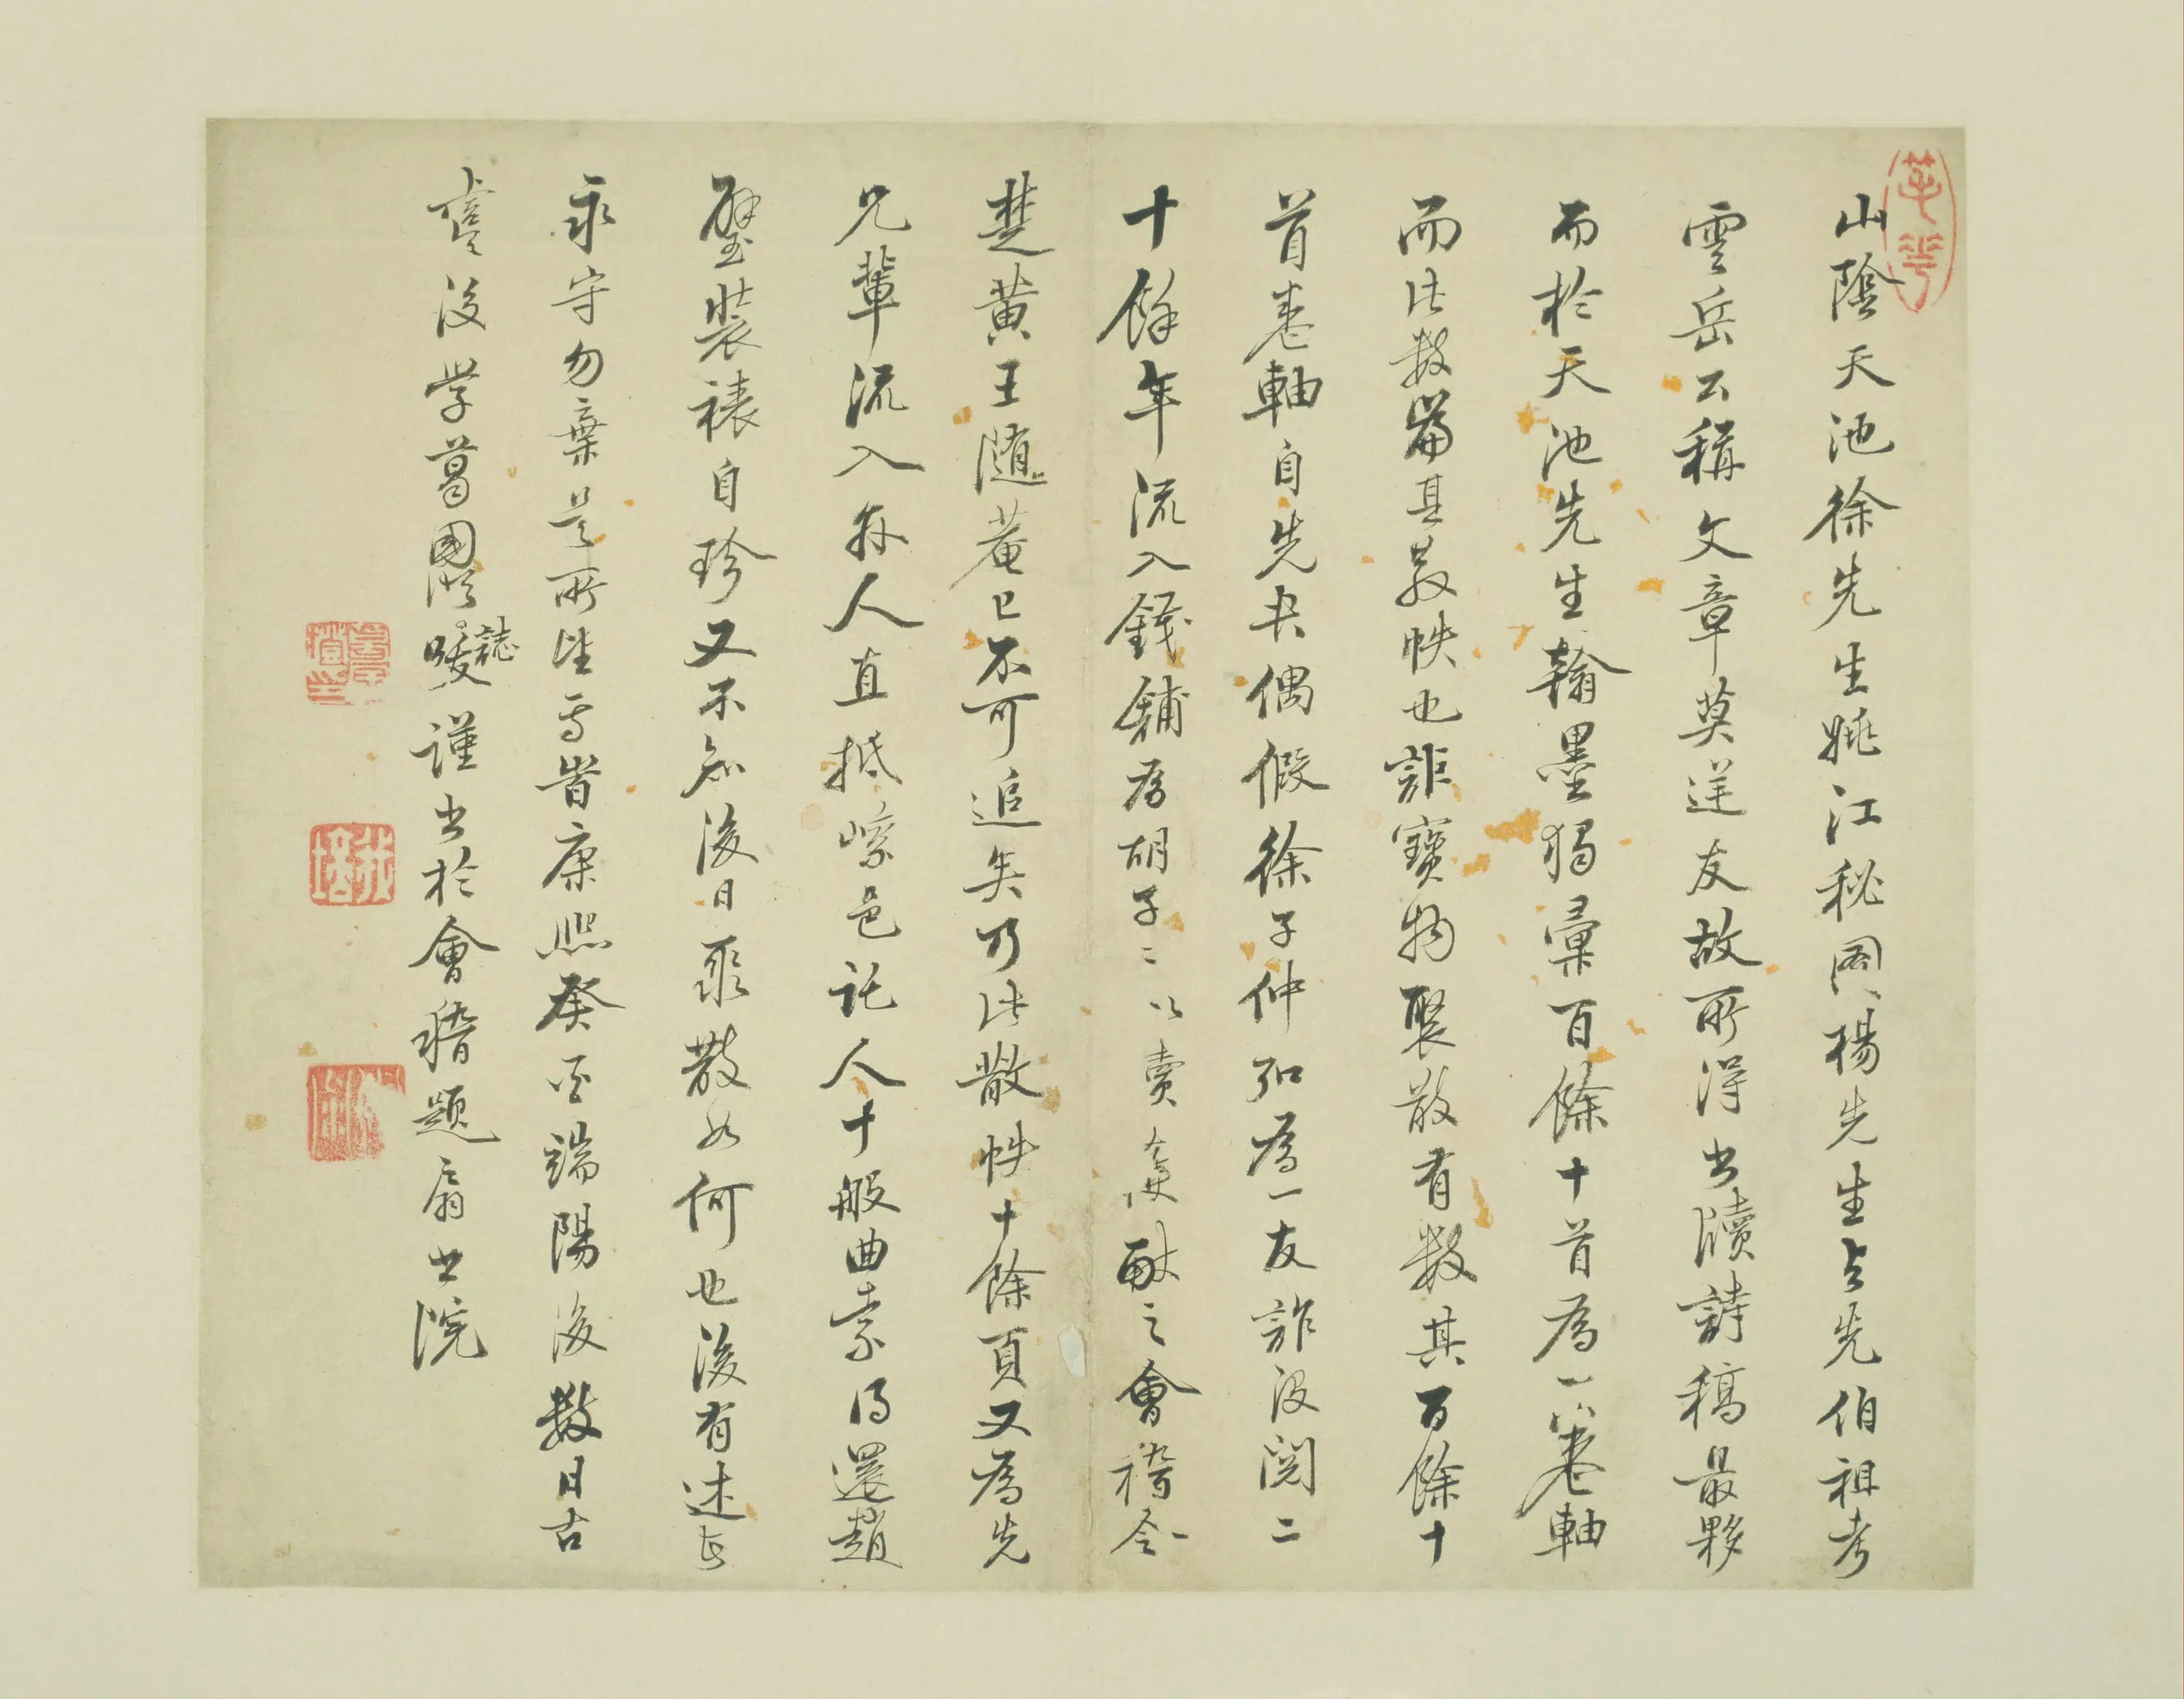 山陰天池徐先生姚江秘圖楊先生與先伯祖考
雲岳公稱文章莫逆友故所得書牘詩稿最夥
而於天池先生翰墨獨彙百餘十首為一卷軸
而此數篇其散帙也詎寶物聚散有數其百餘十
首卷軸自先夫偶假徐子仲弘為一友詐沒閱二
十餘年流入錢鋪為胡子子以賣獻之會稽令
楚黃王隨菴已不可追矣乃此散帙十餘頁又為先
兄輩流入孫人直抵嵊邑託人十般曲索得還趙
璧裝裱自珍又不知後日聚散如何也後有述者
永守勿棄是所望焉昔康熙癸酉端陽後數日古
虞後學葛國 誌謹書於會稽題扇書院